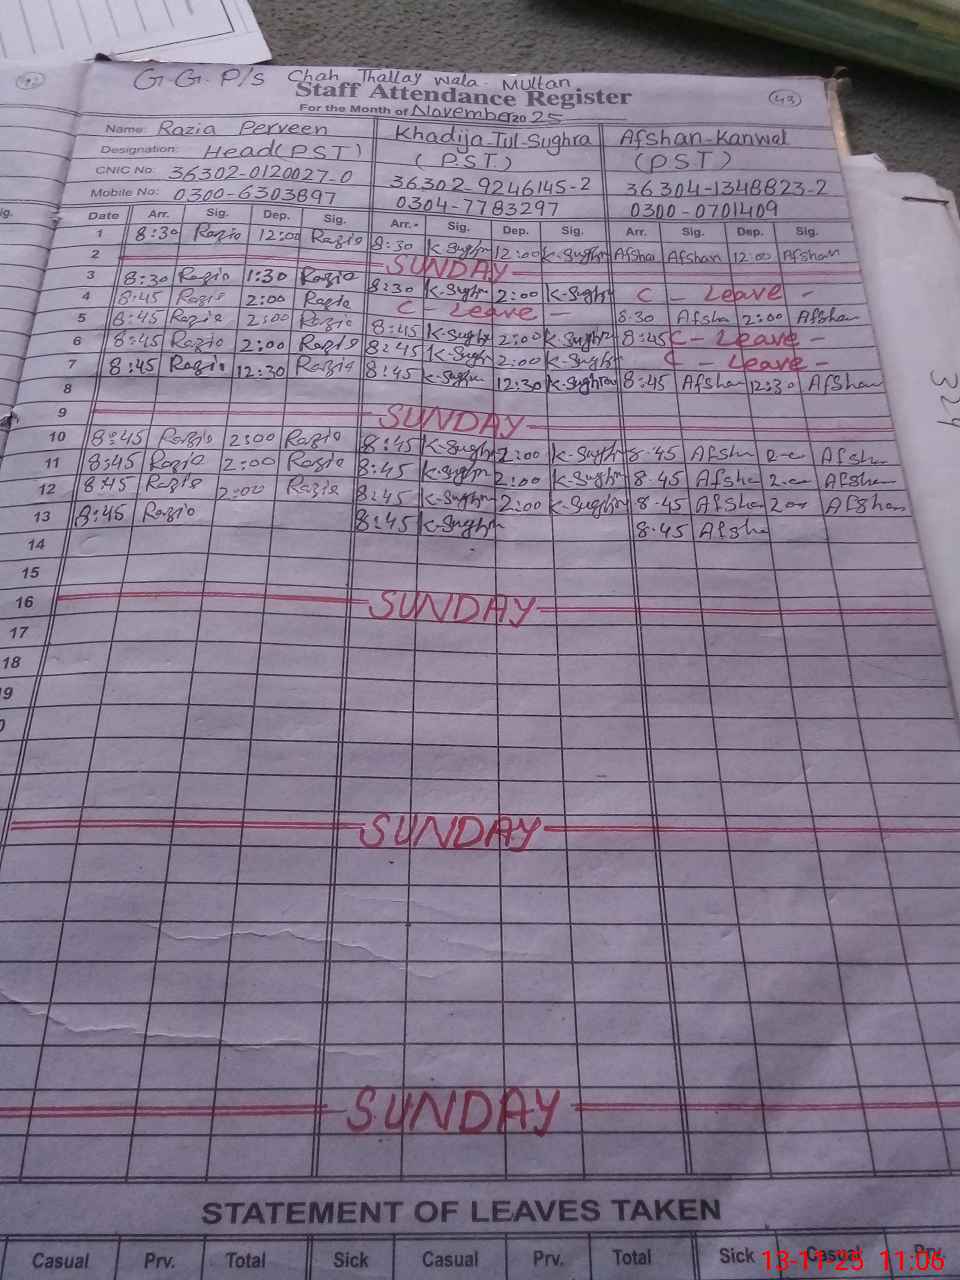 42
G.G.P/s Chah Thallay Wala. Multan
43
Staff Attendance Register
For the Month of November 2025
Name: Razia Perveen Khadija-Tul-Sughra Afshan-Kanwal
Designation: Head(PST) (P.S.T) (P.S.T)
CNIC No: 36302-0120027-0 36302-9246145-2 36304-1348823-2
Mobile No: 0300-6303897 0304-7783297 0300-0701409
Date Arr. Sig. Dep. Sig. Arr. Sig. Dep. Sig. Arr. Sig. Dep. Sig.
1 8:30 Razia 12:00 Razia 8:30 K-Sughra 12:00 K-Sughra Afsha Afshan 12:00 Afshan
2 SUNDAY
3 8:30 Razia 1:30 Razia 8:30 K-Sughra 2:00 K-Sughra C - Leave -
4 8:45 Razia 2:00 Razia C - Leave - 8.30 Afsha 2:00 Afshan
5 8:45 Razia 2:00 Razia 8:45 K-Sughra 2:00 K-Sughra 8:45 C - Leave -
6 8:45 Razia 2:00 Razia 8:45 K-Sughra 2:00 K-Sughra C - Leave -
7 8:45 Razia 12:30 Razia 8:45 K-Sughra 12:30 K-Sughra 8:45 Afshan 12:30 Afshan
8
9 SUNDAY
10 8:45 Razia 2:00 Razia 8:45 K-Sughra 2:00 K-Sughra 8.45 Afsha Afshan
11 8:45 Razia 2:00 Razia 8:45 K-Sughra 2:00 K-Sughra 8.45 Afsha Afshan
12 8:45 Razia 2:00 Razia 8:45 K-Sughra 2:00 K-Sughra 8.45 Afsha 200 Afshan
13 8:45 Razia 8:45 K-Sughra 8.45 Afsha
14
15
16 SUNDAY
17
18
19
SUNDAY
SUNDAY
324
STATEMENT OF LEAVES TAKEN
Casual Prv. Total Sick Casual Prv. Total Sick Casual Prv.
13-11-25 11:06